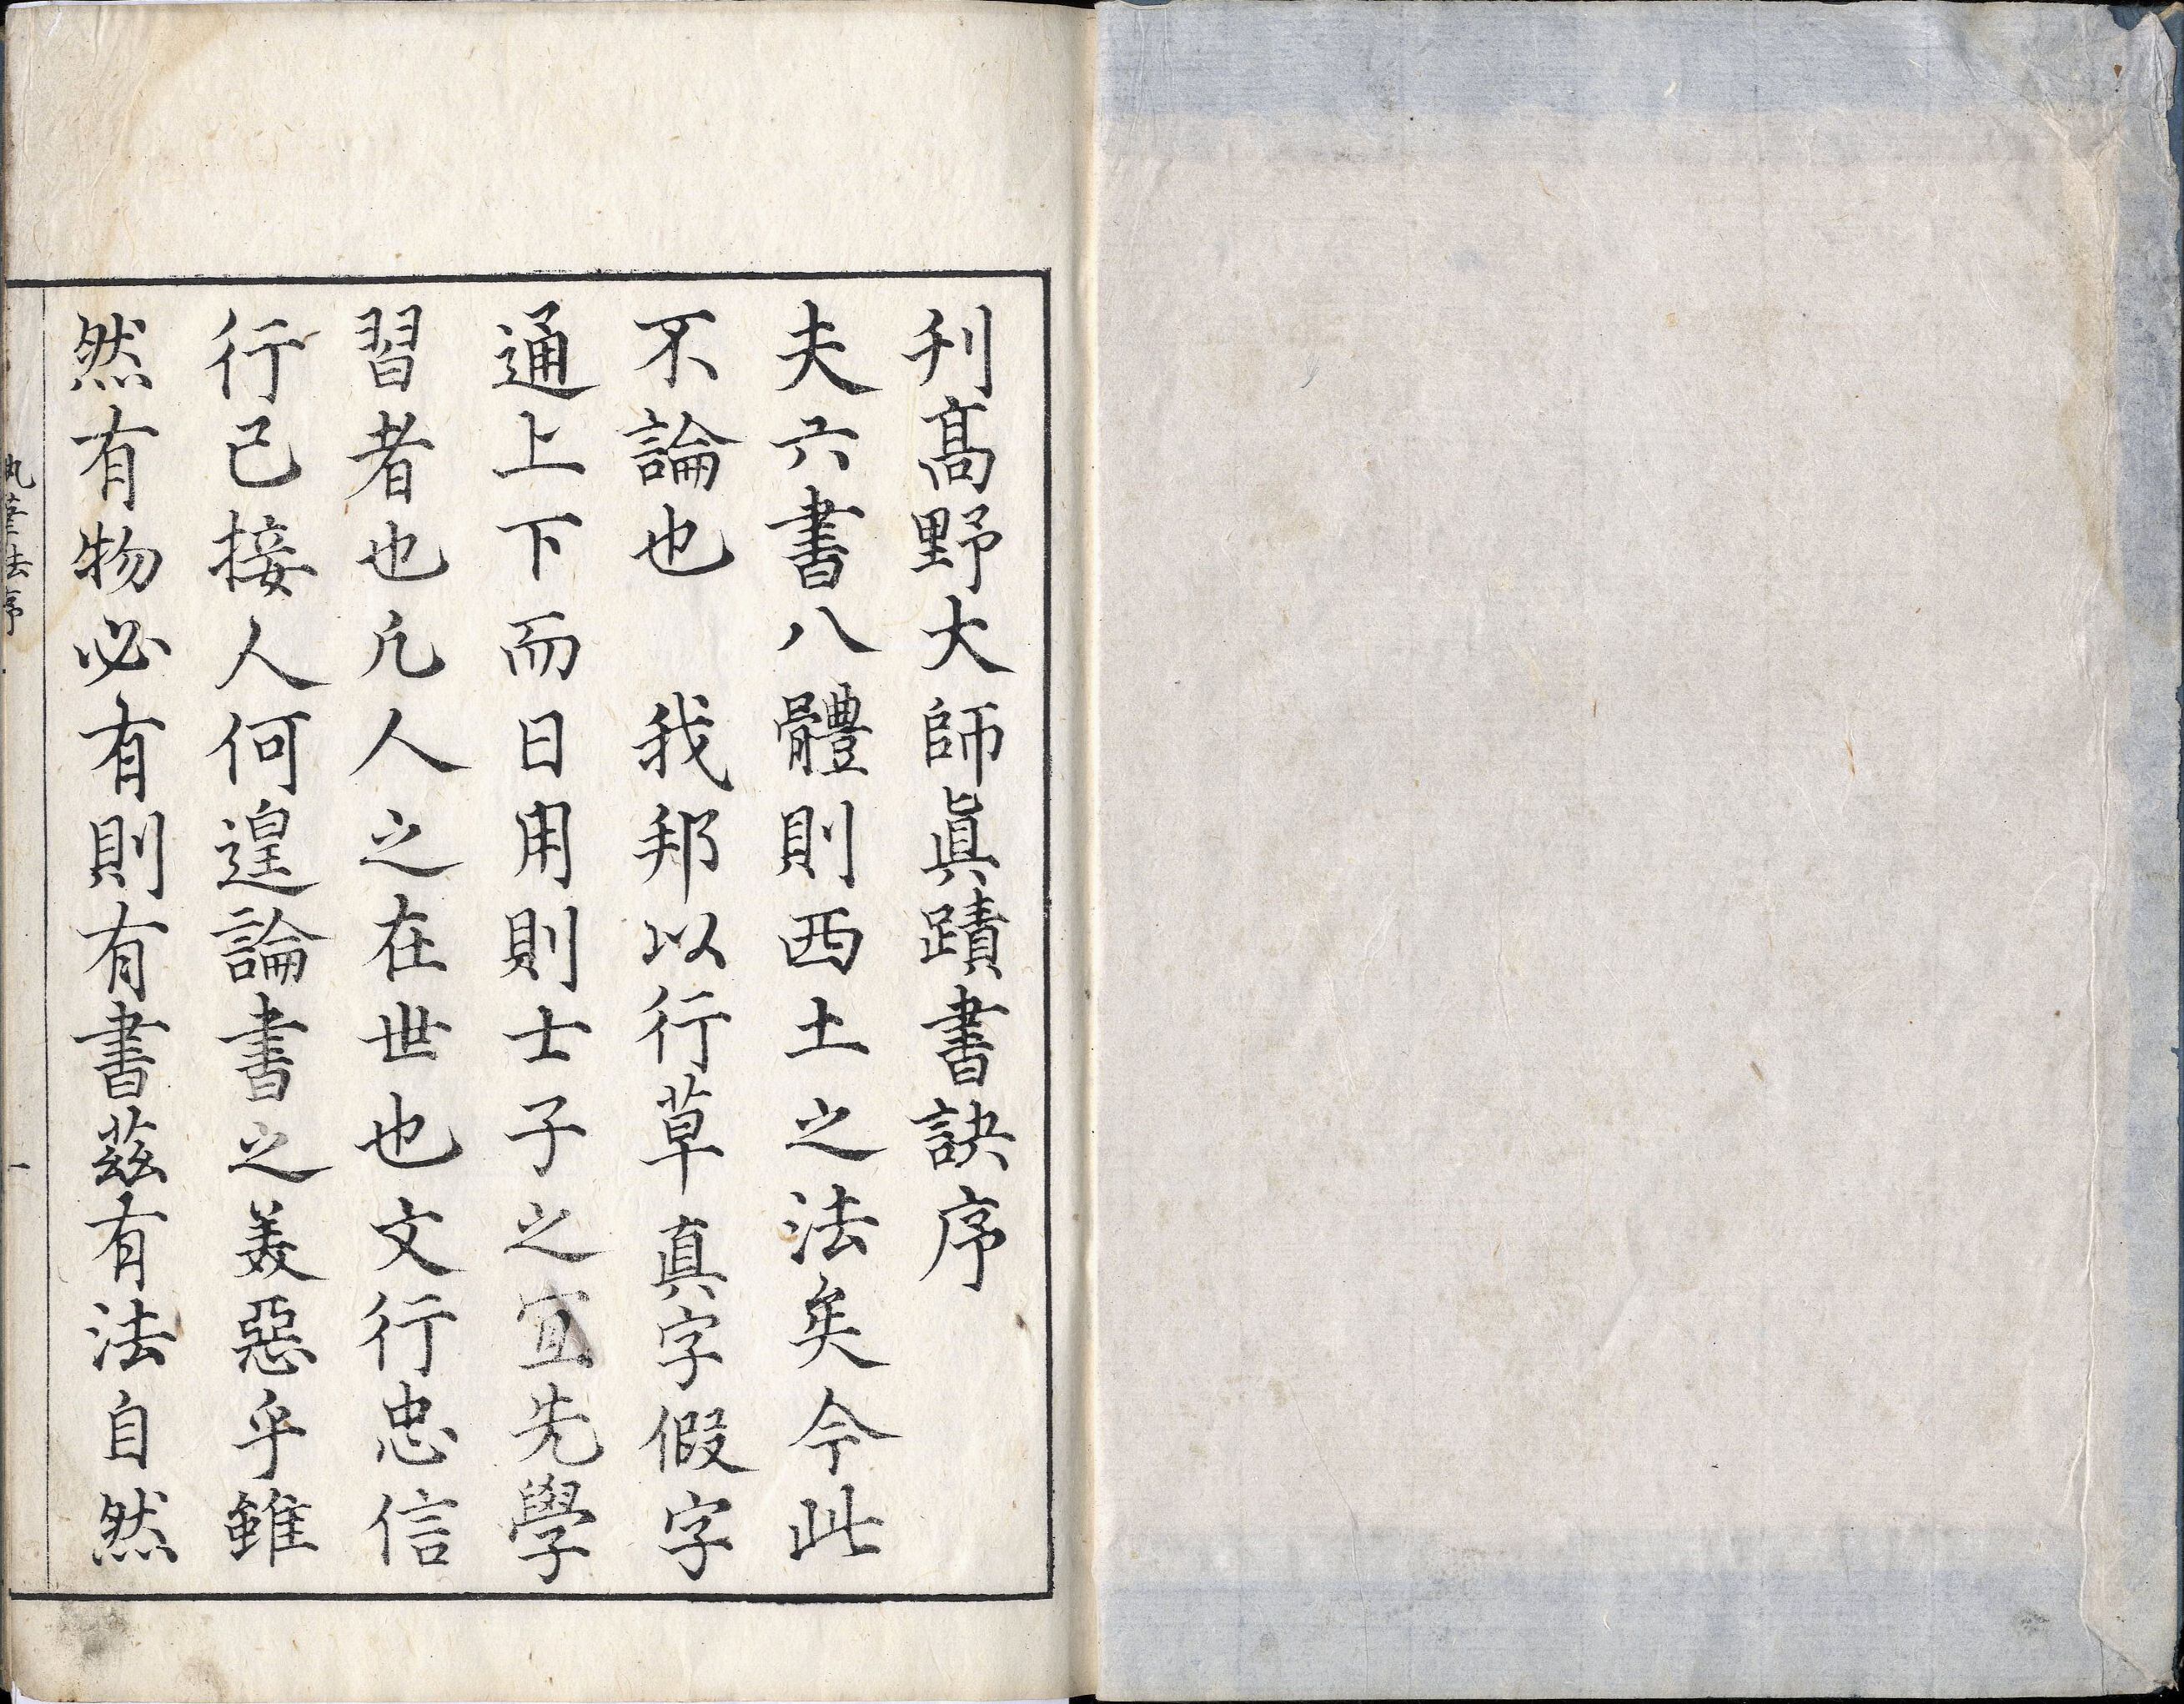 刋髙野大師眞蹟書訣序
夫六書八體則西土之法矣今此
不論也　我邦以行草真字假字
通上下而日用則士子之宜先學
習者也凡人之在世也文行忠信
行己接人何遑論書之美惡乎雖
然有物必有則有書茲有法自然
執筆法序
一